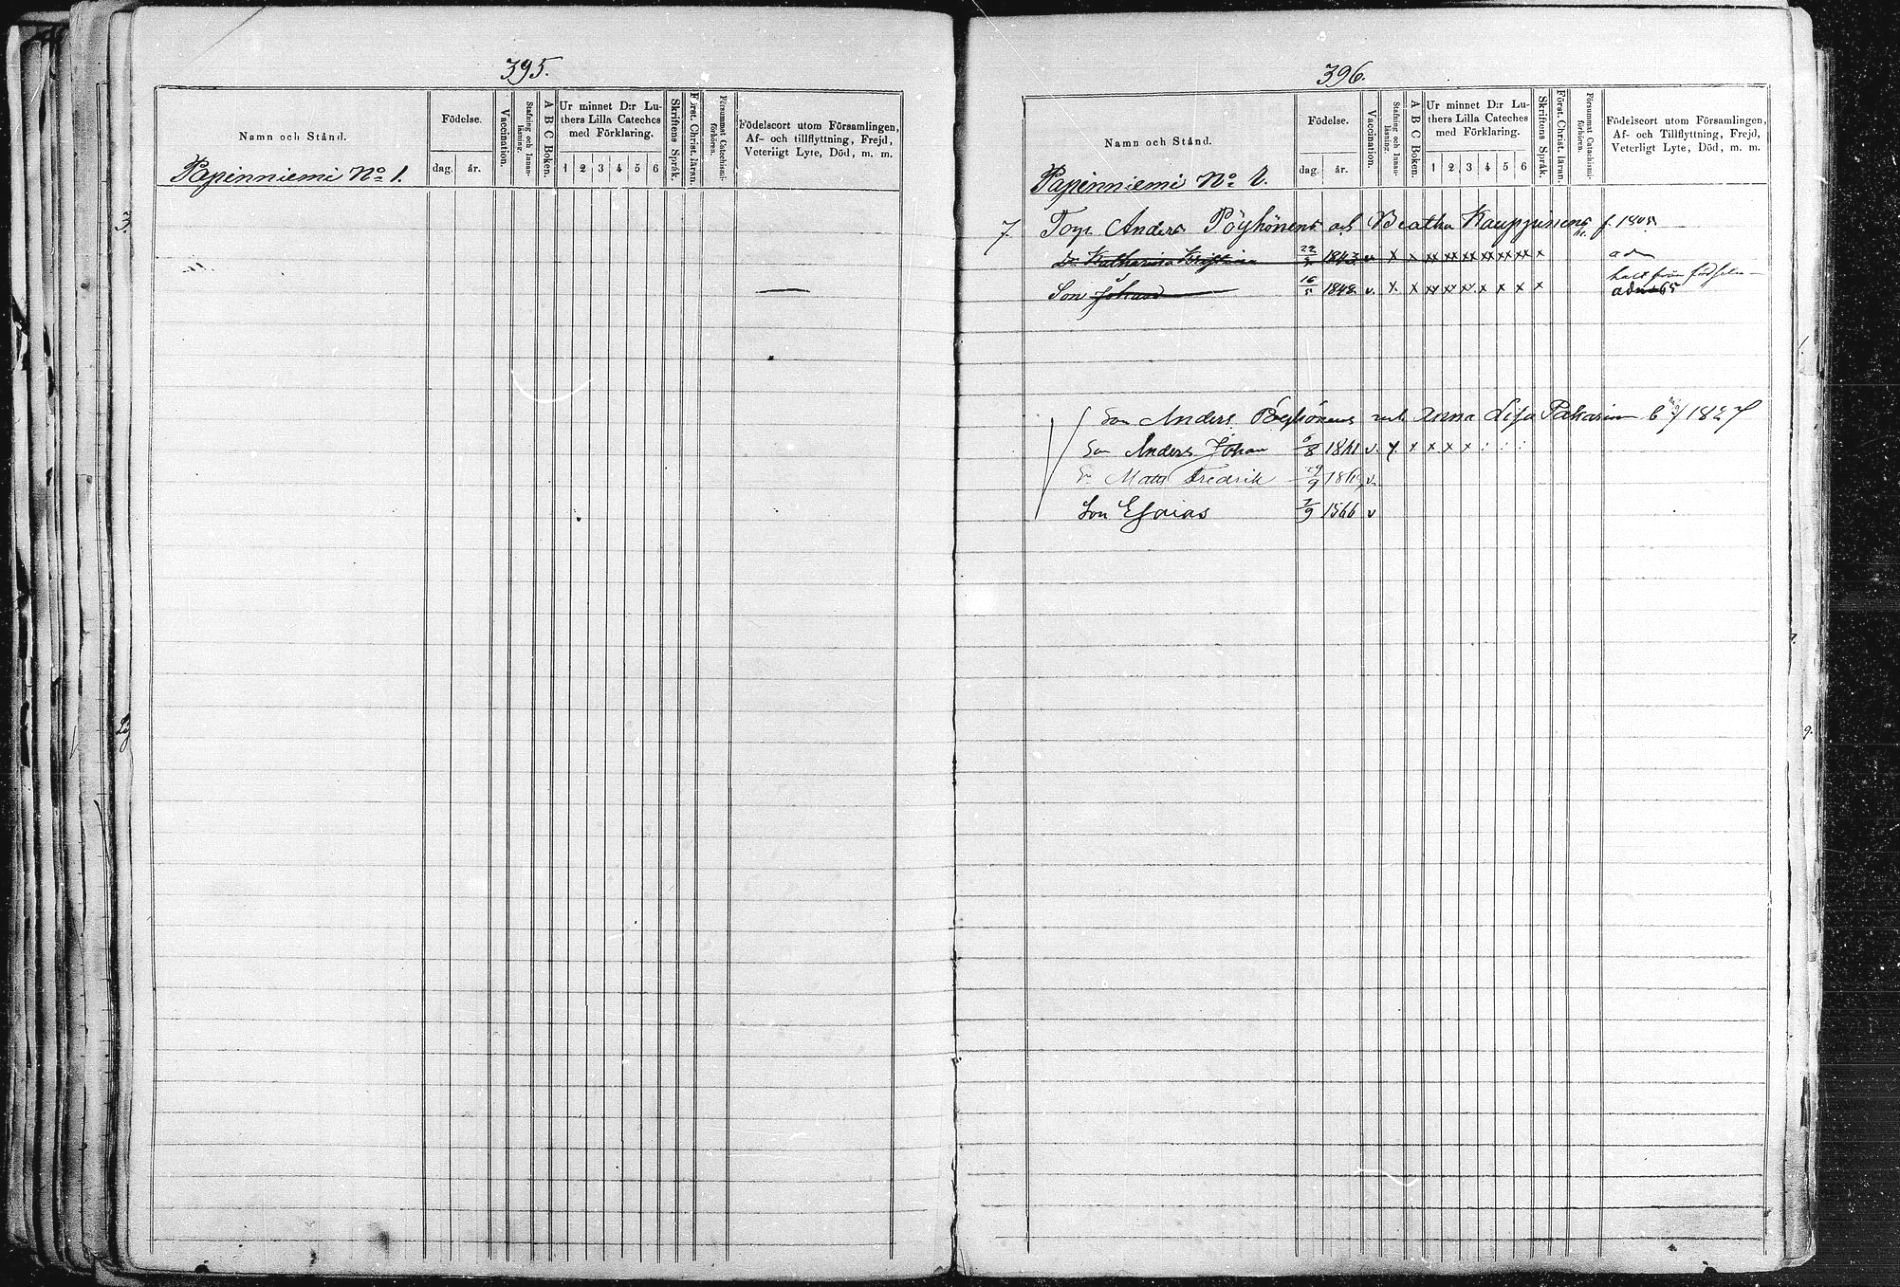 395.
Namn och Stånd.
Födelse.
dag.
år.
Vaccination.
Stafning och Innan-
läsning.
A B C Boken.
Ur minnet D:r Lu-
thers Lilla Cateches
med Förklaring.
1 2 3 4 5 6
Skriftens Språk.
Först. Christ. läran.
Försummat Catechismi-
förhören.
Födelseort utom Församlingen,
Af- och tillflyttning, Frejd,
Veterligt Lyte, Död, m. m.
Papinniemi No 1.
3.
396.
Namn och Stånd.
Födelse.
dag.
år.
Vaccination.
Stafning och Innan-
läsning.
A B C Boken.
Ur minnet D:r Lu-
thers Lilla Cateches
med Förklaring.
1 2 3 4 5 6
Skriftens Språk.
Först. Christ. läran.
Försummat Catechismi-
förhören.
Födelseort utom Församlingen,
Af- och Tillflyttning, Frejd,
Veterligt Lyte, Död, m. m.
Papinniemi No
7 Anders Pöyhönens och Beatha Kauppinens f.
Katharina Kristina 1843 v. x x xx xx xx xx xx xx x adm
halt från födseln
Son Johan 16/5 1848 v. x x xx xx xx x x x x adm 65
Son Anders Pöyhönens Anna Lisa Pakarin 1827
Son Anders Johan 1861 v. x x x x x : : :
Matts Fredrik v.
Son Esaias 2/9 1866 v